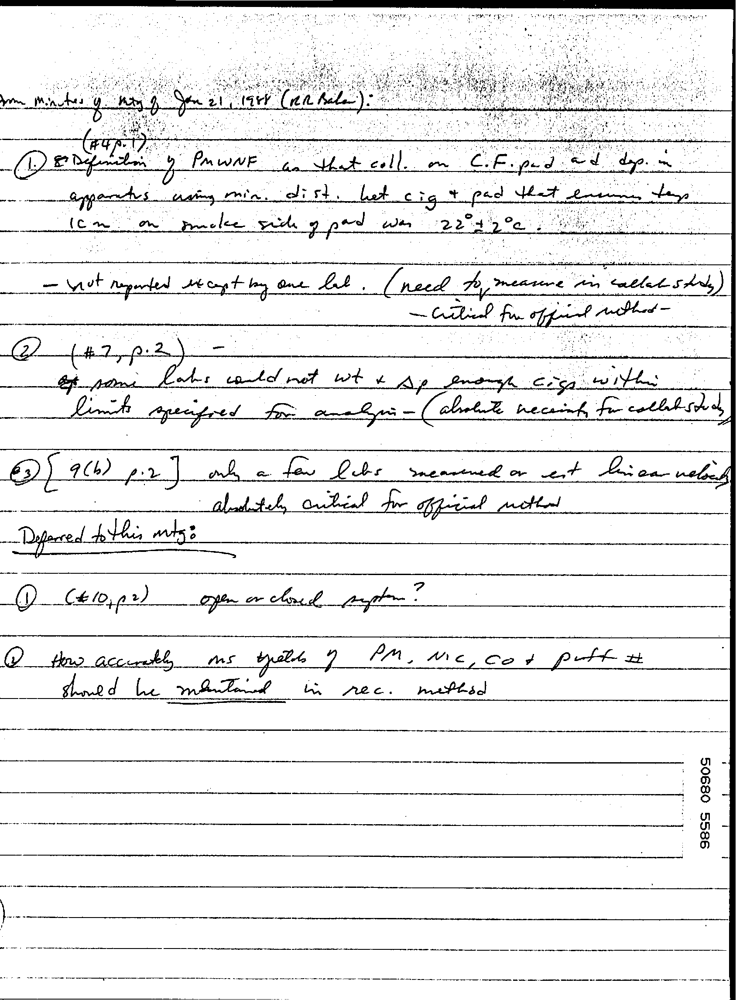 from minutes of mtg of Jan 21, 1988 (RR Baker):
(#4 p.1)
1. Definition of PMWNF as that coll. on C.F. pad and dep. in
apparatus using min. dist. bet cig + pad that ensures temp
1cm on smoke side of pad was 22° ± 2°C.
- not reported except by one lab. (need to measure in collab study)
- critical for official method -
2 (#7, p.2) -
some labs could not wt + Δp enough cigs within
limits specified for analysis - (absolute necessity for collab study
3 [9(b) p.2] only a few labs measured or est linear velocity
absolutely critical for official method
Deferred to this mtg:
1 (#10, p2) open or closed system?
2 How accurately ms yields of PM, NIC, CO + puff #
should be mentioned in rec. method
50680 5586